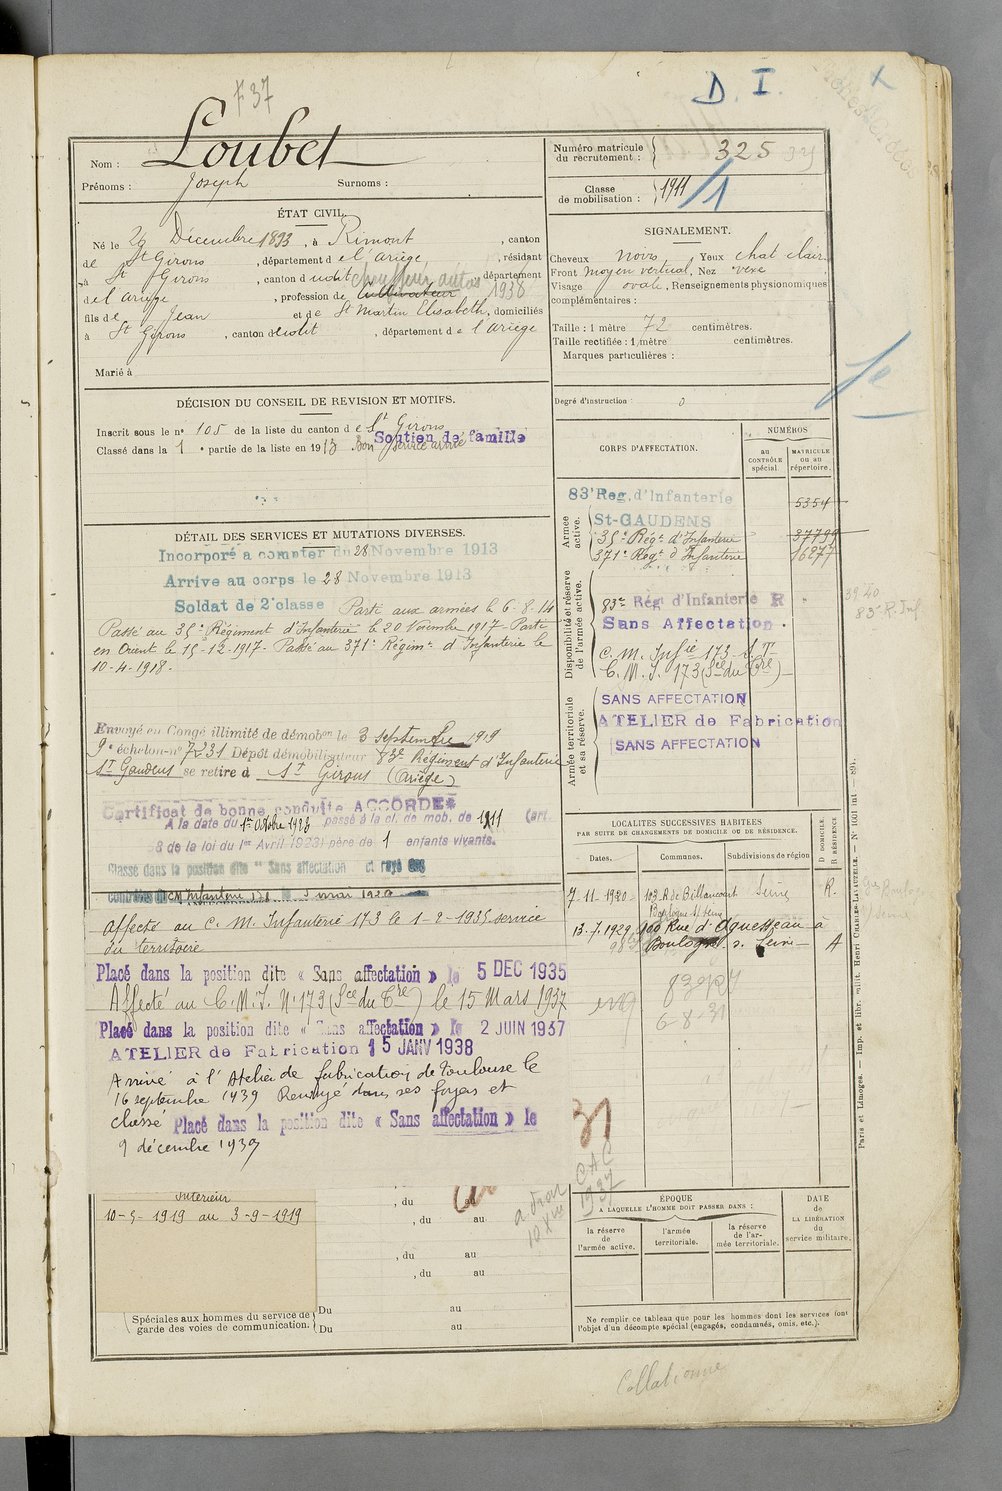 F 37
D. I. X
Nom : Loubet
Prénoms : Joseph Surnoms :
Numéro matricule du recrutement : 325
Classe de mobilisation : 1911 /1
ÉTAT CIVIL.
Né le 26 Décembre 1893, à Rimont, canton
de St Girons, département de l'ariège, résidant
à St Girons, canton dudit chauffeur autos département
de l'ariège, profession de Cultivateur 1938
fils de Jean et de St Martin Elisabeth, domiciliés
à St Girons, canton dudit, département de l'ariège
Marié à
SIGNALEMENT.
Cheveux noirs Yeux chat clair
Front moyen vertical, Nez vexe
Visage ovale, Renseignements physionomiques
complémentaires :
Taille : 1 mètre 72 centimètres.
Taille rectifiée : 1 mètre centimètres.
Marques particulières :
Degré d'instruction : 0
DÉCISION DU CONSEIL DE REVISION ET MOTIFS.
Inscrit sous le n° 105 de la liste du canton de St Girons
Classé dans la 1e partie de la liste en 1913 Bon service armé
Soutien de famille
DÉTAIL DES SERVICES ET MUTATIONS DIVERSES.
Incorporé a compter du 28 Novembre 1913
Arrive au corps le 28 Novembre 1913
Soldat de 2e classe Parti aux armées le 6-8-14
Passé au 35e Régiment d'Infanterie le 20 Novembre 1917 - Parti
en Orient le 15-12-1917. Passé au 371e Régimt d'Infanterie le
10-4-1918.
Envoyé en Congé illimité de démobon le 3 Septembre 1919
9e échelon - n° 7231 Dépôt démobilisateur 83e Régiment d'Infanterie
St Gaudens se retire à St Girons (Ariège)
Certificat de bonne conduite ACCORDÉ
A la date du 1er Octobre 1923 passé à la cl. de mob. de 1911 (art.
58 de la loi du 1er Avril 1923) père de 1 enfants vivants.
Classé dans la position dite "Sans affectation et rayé des
contrôles
affecté au C. M. Infanterie 173 le 1-2-1935 service
du territoire
Placé dans la position dite « Sans affectation » le 5 DEC 1935
Affecté au C.M.I. N° 173 (Sce du Tre) le 15 Mars 1937
Placé dans la position dite « Sans affectation » le 2 JUIN 1937
ATELIER de Fabrication 15 JANV 1938
Arrivé à l'Atelier de fabrication de Toulouse le
16 septembre 1939 Renvoyé dans ses foyers et
classé Placé dans la position dite « Sans affectation » le
9 décembre 1939
Intérieur
10-5-1919 au 3-9-1919
, du au
, du au
, du au
, du au
Spéciales aux hommes du service de garde des voies de communication.
Du au
Du au
CORPS D'AFFECTATION.
NUMÉROS
au CONTRÔLE spécial.
MATRICULE ou au répertoire.
Armée active.
83e Reg. d'Infanterie 5354
St-GAUDENS
35e Régt d'Infanterie 37799
371e Régt d'Infanterie 16277
Disponibilité et réserve de l'armée active.
83e Rég d'Infanterie R
Sans Affectation.
C. M. Infie 173 - S.T.
C. M. I. 173 (Sce du Tre)
39 40
83e R. Inf
Armée territoriale et sa réserve.
SANS AFFECTATION
ATELIER de Fabrication
SANS AFFECTATION
LOCALITES SUCCESSIVES HABITÉES
PAR SUITE DE CHANGEMENTS DE DOMICILE OU DE RÉSIDENCE.
Dates. Communes. Subdivisions de région
D DOMICILE. R RÉSIDENCE
7-11-1920 103 R de Billancourt Seine R.
Boulogne s/ Seine
13-7-1929 100 Rue d'Aguesseau à
Boulogne s. Seine A
6-8-31
31
CAC
1937
ÉPOQUE
A LAQUELLE L'HOMME DOIT PASSER DANS :
la réserve de l'armée active.
l'armée territoriale.
la réserve de l'armée territoriale.
DATE de LA LIBÉRATION du service militaire.
Ne remplir ce tableau que pour les hommes dont les services font
l'objet d'un décompte spécial (engagés, condamnés, omis, etc.).
Paris et Limoges. — Imp. et libr. milit. Henri CHARLES-LAVAUZELLE.
Collationné